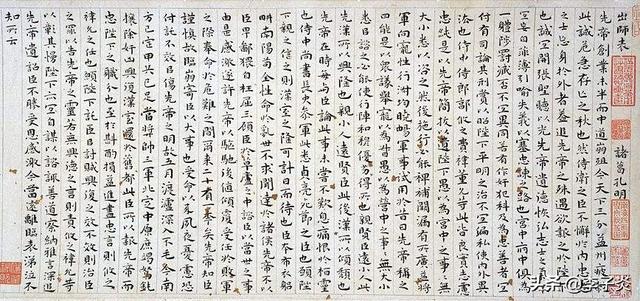 出師表 諸葛孔明
先帝創業未半而中道崩殂今天下三分益州疲弊
此誠危急存亡之秋也然侍衛之臣不懈於內忠志
之士忘身於外者蓋追先帝之殊遇欲報之於陛下
也誠宜開張聖聽以光先帝遺德恢弘志士之氣不
宜妄自菲薄引喻失義以塞忠諫之路也宮中府中俱為
一體陟罰臧否不宜異同若有作奸犯科及為忠善者宜
付有司論其刑賞以昭陛下平明之治不宜偏私使內外異
法也侍中侍郎郭攸之費禕董允等此皆良實志慮
忠純是以先帝簡拔以遺陛下愚以為宮中之事事無
大小悉以咨之然後施行必能裨補闕漏有所廣益將
軍向寵性行淑均曉暢軍事試用於昔日先帝稱之
曰能是以眾議舉寵以為督愚以為營中之事事無大小
悉以咨之必能使行陣和穆優劣得所也親賢臣遠小人此
先漢所以興隆也親小人遠賢臣此後漢所以傾頹也
先帝在時每與臣論此事未嘗不歎息痛恨於桓靈
也侍中尚書長史參軍此悉貞亮死節之臣也願陛
下親之信之則漢室之隆可計日而待也臣本布衣躬
耕南陽苟全性命於亂世不求聞達於諸侯先帝不以
臣卑鄙猥自枉屈三顧臣於草廬之中諮臣以當世之事
由是感激遂許先帝以驅馳後值傾覆受任於敗軍
之際奉命於危難之間爾來二十有一年矣先帝知臣
謹慎故臨崩寄臣以大事也受命以來夙夜憂慮恐
付託不效以傷先帝之明故五月渡瀘深入不毛今南
方已定甲兵已足當獎帥三軍北定中原庶竭駑鈍
攘除奸凶興復漢室還於舊都此臣所以報先帝而忠
陛下之職分也至於斟酌損益進盡忠言則攸之
禕允之任也願陛下託臣以討賊興復之效不效則治臣
之罪以告先帝之靈若無興德之言則責攸之禕允等
之咎以彰其慢陛下亦宜自謀以諮諏善道察納雅言深追
先帝遺詔臣不勝受恩感激今當遠離臨表涕泣不
知所云
头条